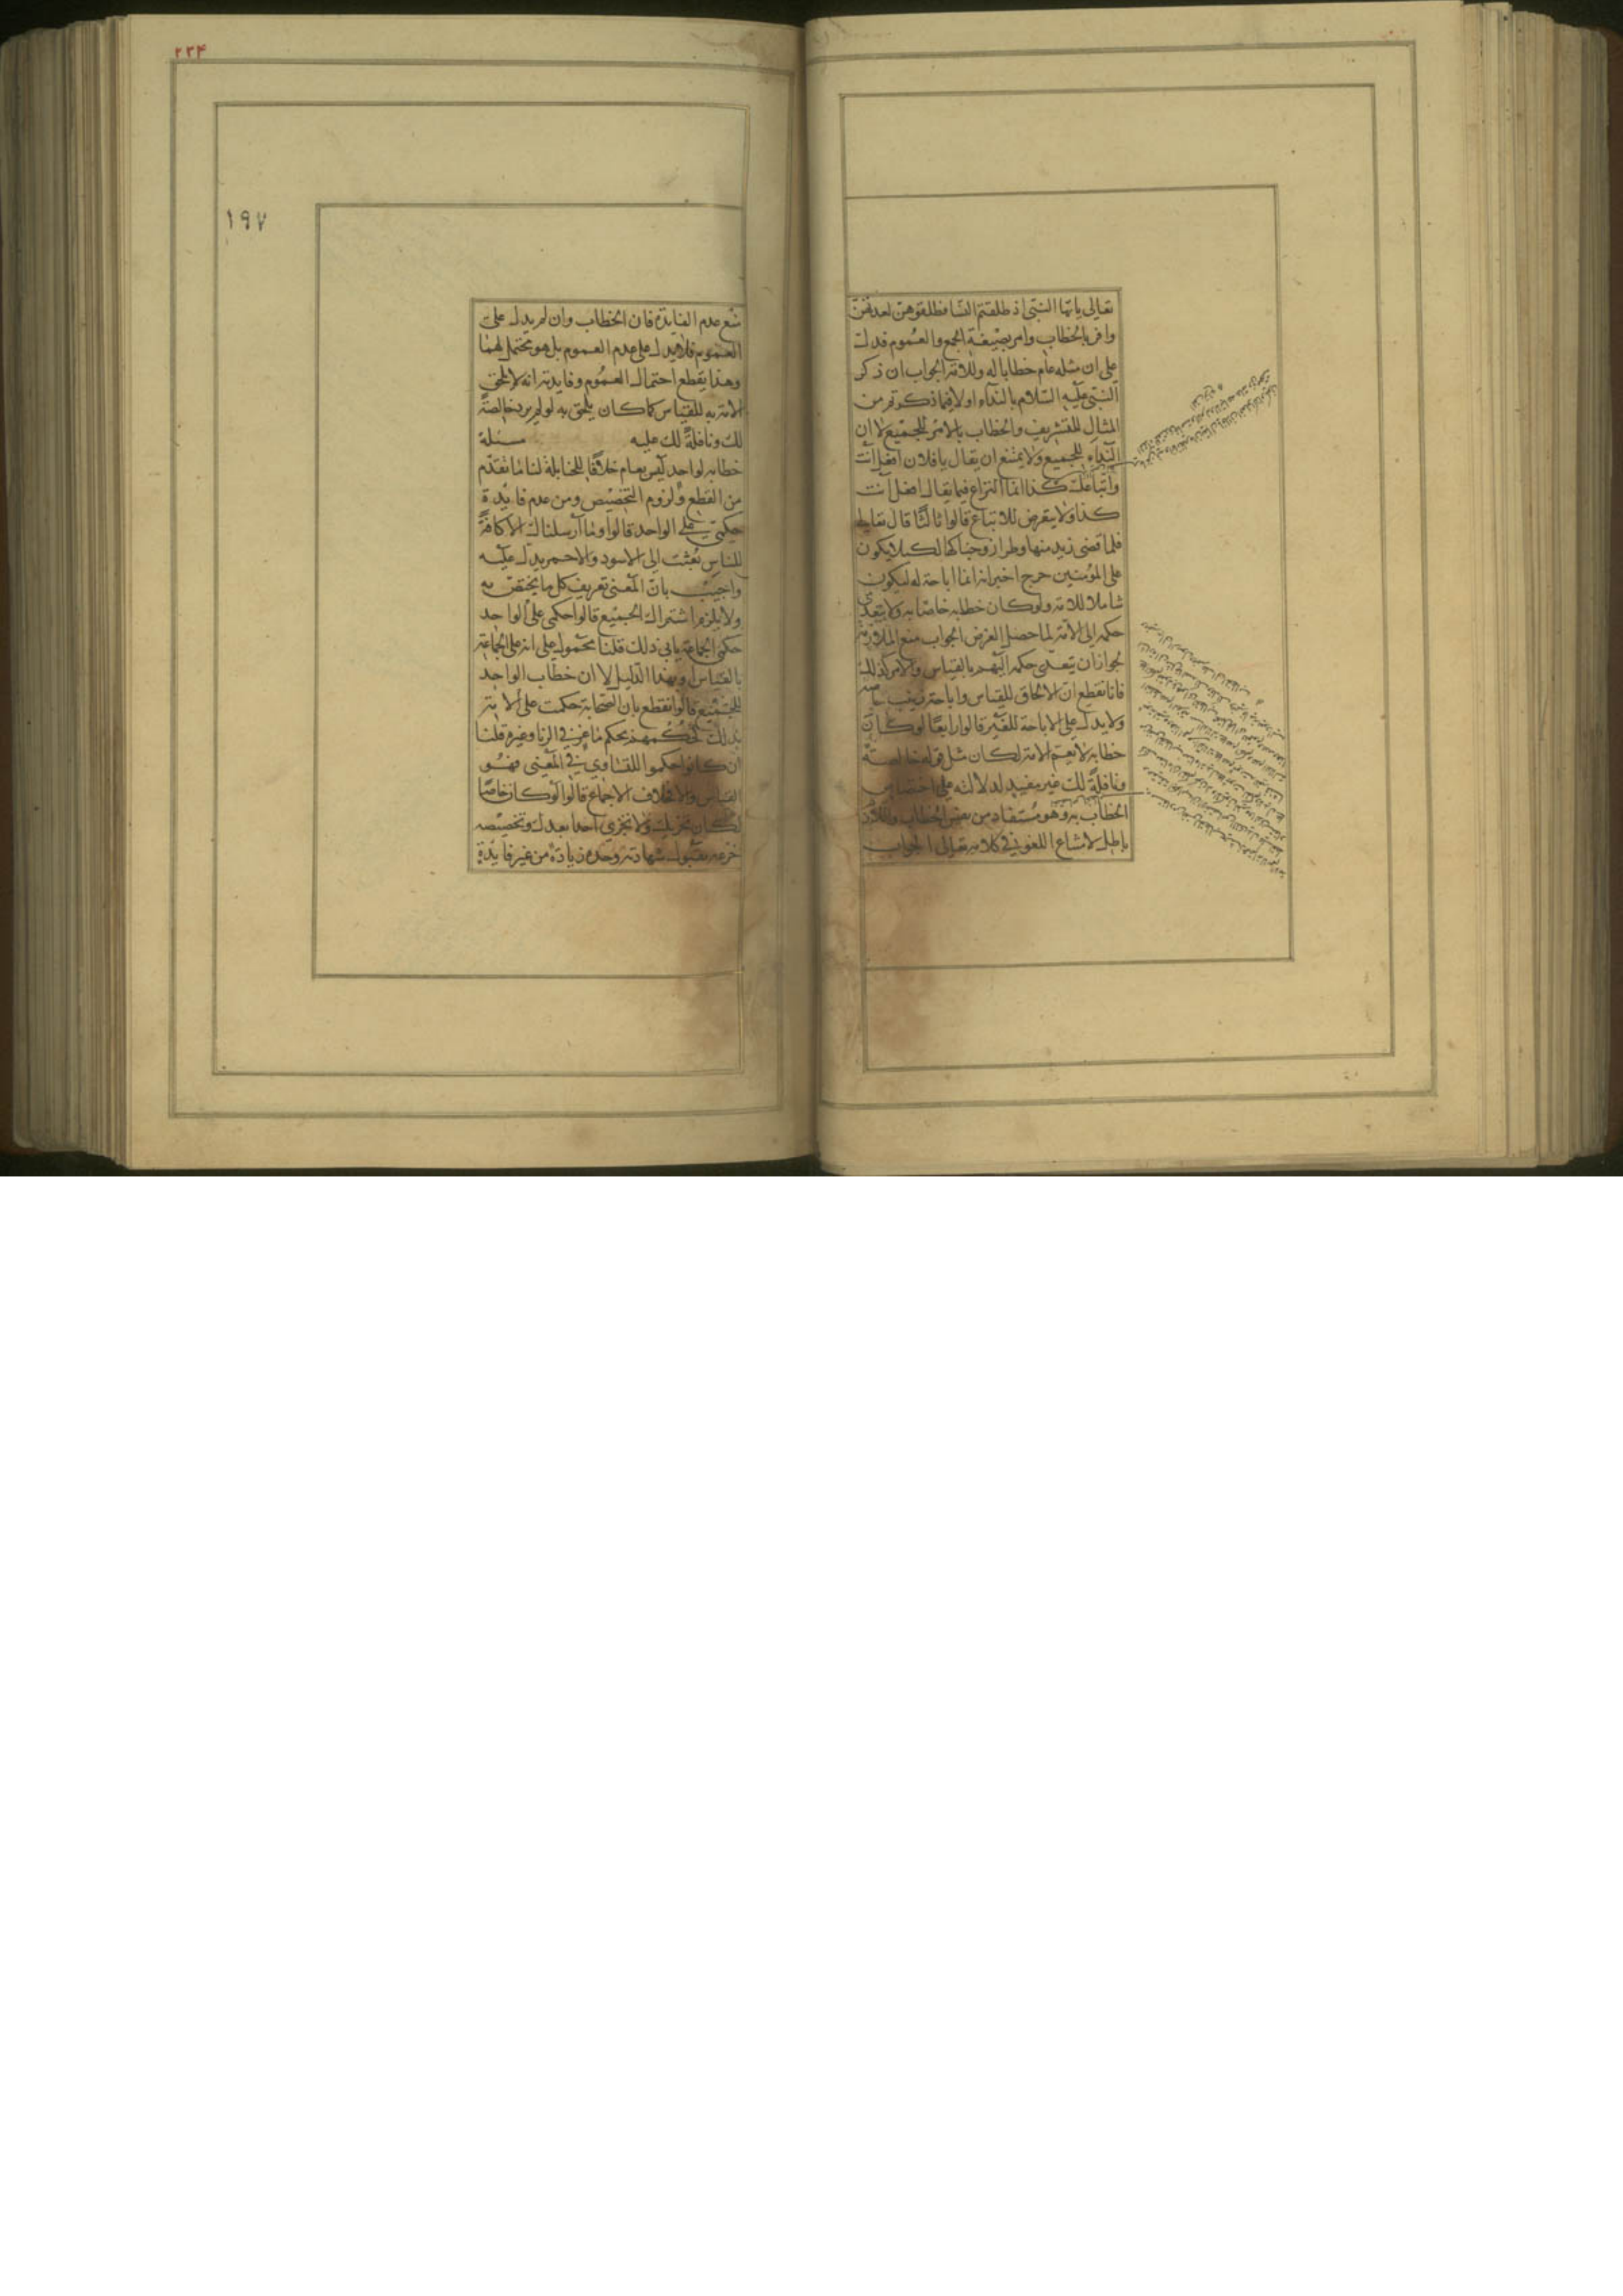 تعالى يا ايها النبى اذ طلقتم النسا فطلقوهن لعدتهن
وافر بالخطاب وامر بصيغة الجمع والعموم فدل
على ان مثله عام خطابا له وللامة الجواب ان ذكر
النبى عليه السلام بالنداء اولا فيما ذكرتم من
المثال للتشريف والخطاب بالامر للجميع لا ان
النداء للجميع ولا يمتنع ان يقال يا فلان افعل انت
واتباعك كذا انما النزاع فيما يقال افعل انت
كذا ولا يتعرض للاتباع قالوا ثالثا قال تعالى
فلما قضى زيد منها وطرا زوجناكها لكيلا يكون
على المؤمنين حرج اخبر انه انما اباحه له ليكون
شاملا للامة ولو كان خطابه خاصا به ولا يتعدى
حكمه الى الامة لما حصل الغرض الجواب منع الملازمة
لجواز ان يتعدى حكمه اليهم بالقياس والامر كذلك
فانا نقطع ان الالحاق للقياس واباحة زينب
ولا يدل على الاباحة للغير قالوا رابعا لو كان
خطابه لا يعم الامة لكان مثل قوله خالصة
ونافلة لك غير مفيد لدلالته على اختصاص
الخطاب به وهو مستفاد من نفس الخطاب واللازم
باطل لامتناع اللغو فى كلامه تعالى الجواب
٢٢٤
١٩٧
منع عدم الفايدة فان الخطاب وان لم يدل على
العموم فلا يدل على عدم العموم بل هو محتمل لهما
وهذا يقطع احتمال العموم وفايدته انه لا يلحق
الامة به للقياس كما كان يلحق به لو لم يرد خالصة
لك ونافلة لك عليه مسئلة
خطابه لواحد ليس بعام خلافا للحنابلة لنا ما تقدم
من القطع ولزوم التخصيص ومن عدم فايدة
حكمى على الواحد قالوا وما ارسلناك الا كافة
للناس بعثت الى الاسود والاحمر يدل عليه
واجيب بان المعنى تعريف كل ما يختص به
ولا يلزم اشتراك الجميع قالوا حكمى على الواحد
حكمى الجماعة يابى ذلك قلنا محمول على انه على الجماعة
بالقياس او بهذا الدليل لا ان خطاب الواحد
للجميع قالوا نقطع بان الصحابة حكمت على الامة
بذلك كحكمهم بحكم ماعز فى الزنا وغيره قلنا
ان كانوا حكموا للتساوى فى المعنى فهو
القياس والا فخلاف الاجماع قالوا لو كان خاصا
لكان تجزيك ولا تجزى احدا بعدك وتخصيصه
خزيمه بقبول شهادته وحده زيادة من غير فايدة